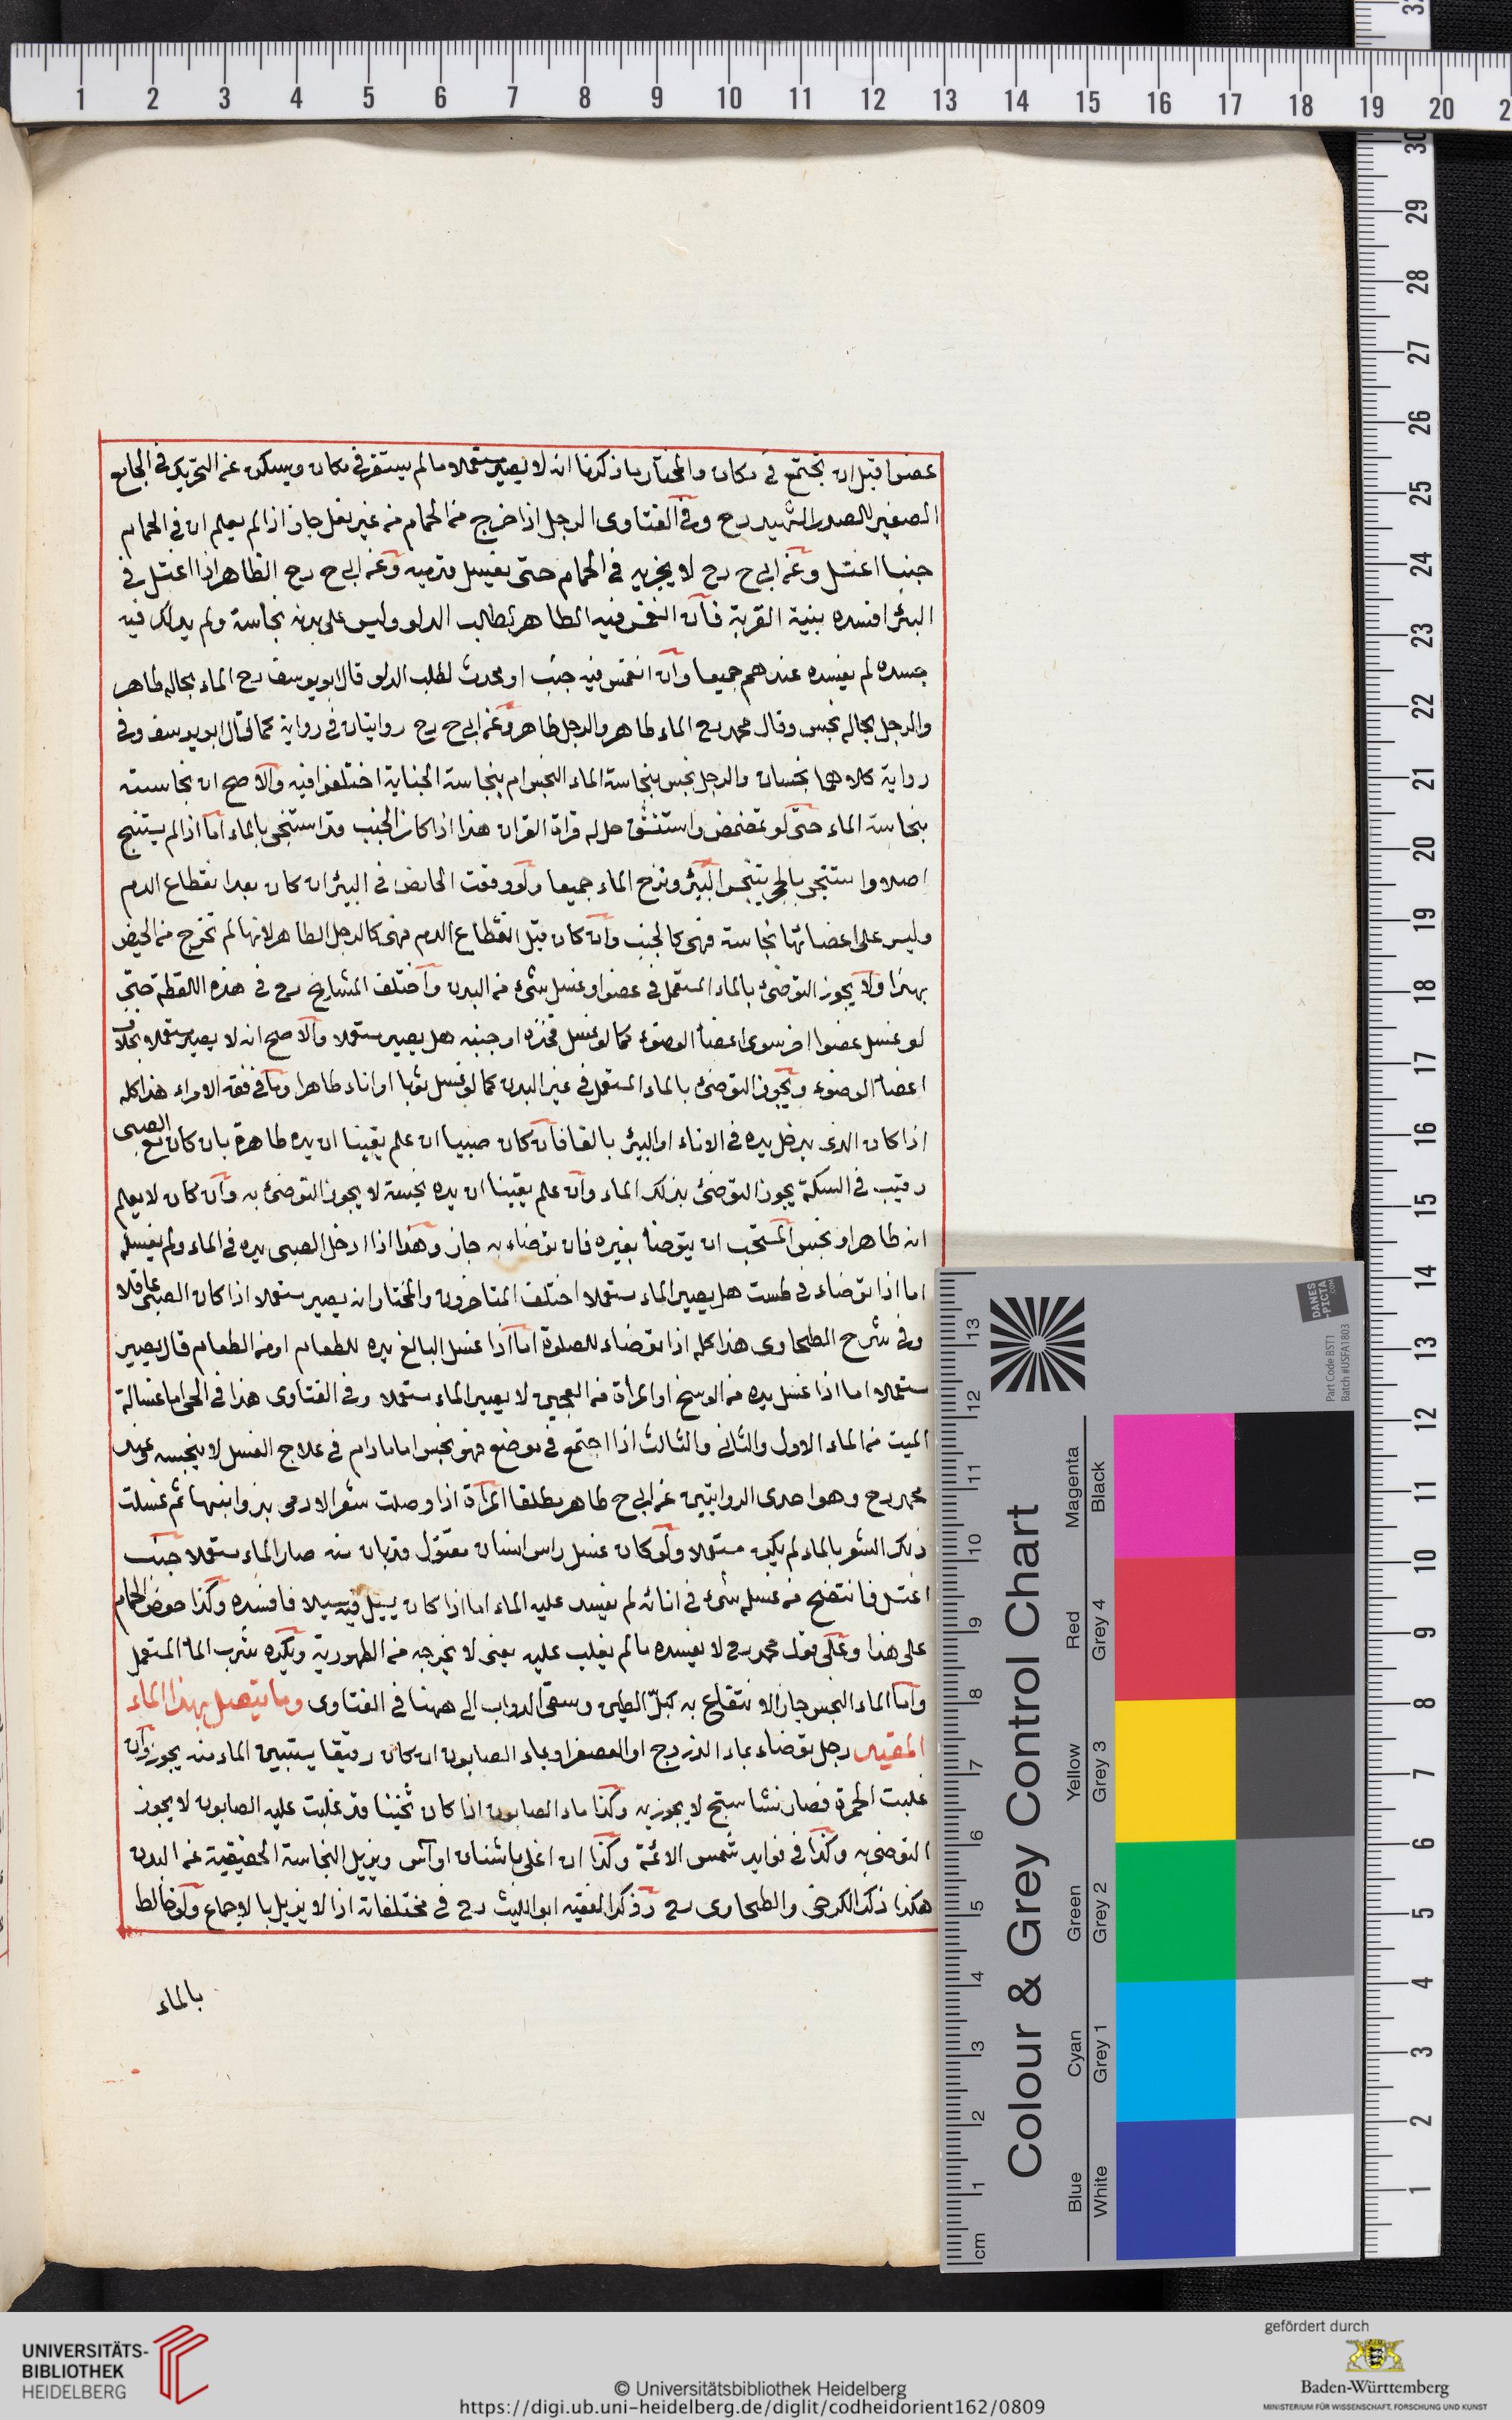 عضوا قبل ان تجتمع في مكان والمختار ما ذكرنا انه لا يصير مستعملا ما لم يستقر في مكان ويسكن عن التحريك في الجامع
الصغير للصدر الشهيد رح وفي الفتاوى الرجل اذا خرج من الحمام من غير نعل جاز اذا لم يعلم ان في الحمام
جنبا اغتسل وعن ابي ح رح لا يجزيه في الحمام حتى يغسل قدميه وعن ابي ح رح الطاهر اذا اغتسل في
البئر افسده بنية القربة فان انغمس فيه الطاهر لطلب الدلو وليس على بدنه نجاسة ولم يدلك فيه
جسده لم يفسده عندهم جميعا وان انغمس فيه جنب او محدث لطلب الدلو قال ابو يوسف رح الماء بحاله طاهر
والرجل بحاله نجس وقال محمد رح الماء طاهر والرجل طاهر وعن ابي ح رح روايتان في رواية كما قال ابو يوسف وفي
رواية كلاهما نجسان والرجل نجس بنجاسة الماء النجس ام بنجاسة الجنابة اختلفوا فيه والاصح ان نجاسته
بنجاسة الماء حتى لو تمضمض واستنشق حل له قراة القران هذا اذا كان الجنب قد استنجى بالماء اما اذا لم يستنج
اصلا واستنجى بالحجر يتنجس البئر ونزح الماء جميعا ولو وقعت الحائض في البئر ان كان بعد انقطاع الدم
وليس على اعضائها نجاسة فهي كالجنب وان كان قبل انقطاع الدم فهي كالرجل الطاهر لانها لم تخرج من الحيض
بهذا ولا يجوز التوضئ بالماء المستعمل في عضو او غسل شئ من البدن واختلف المشايخ رح في هذه اللفظة حتى
لو غسل عضوا اخر سوى اعضا الوضوء كما لو غسل فخذه او جنبه هل يصير مستعملا والاصح انه لا يصير مستعملا بخلاف
اعضا الوضوء ويجوز التوضئ بالماء المستعمل في غير البدن كما لو غسل ثوبا او اناء طاهرا وما في فقه الامراء هذا كله
اذا كان الذي يدخل يده في الاناء او البير بالغا فان كان صبيا ان علم يقينا ان يده طاهرة بان كان مع الصبى
رقيب في السكة يجوز التوضئ بذلك الماء وان علم يقينا ان يده نجسة لا يجوز التوضئ به وان كان لا يعلم
انه طاهر او نجس المستحب ان يتوضأ بغيره فان توضاء به جاز وهذا اذا ادخل الصبى يده في الماء ولم يغسله
اما اذا توضاء في طست هل يصير الماء مستعملا اختلف المتاخرون والمختار انه يصير مستعملا اذا كان الصبى عاقلا
وفي شرح الطحاوى هذا كله اذا توضاء للصلوة اما اذا غسل البالغ يده للطعام او من الطعام قال يصير
مستعملا اما اذا غسل يده من الوسخ او المراة من العجين لا يصير الماء مستعملا وفي الفتاوى هذا في الحى اما غسالة
الميت من الماء الاول والثانى والثالث اذا اجتمع في موضع فهو نجس اما ما دام في علاج الغسل لا ينجسه عند
محمد رح وهو احدى الروايتين عن ابي ح طاهر مطلقا المراة اذا وصلت شعر الادمى بذوايبها ثم غسلت
ذلك الشعر بالماء لم يكن مستعملا ولو كان غسل راس انسان مقتول قد بان منه صار الماء مستعملا جنب
اغتسل فانتضح من غسله شئ في انائه لم يفسد عليه الماء اما اذا كان يسيل فيه سيلا فافسده وكذا حوض الحمام
على هذا وعلى قول محمد رح لا يفسده ما لم يغلب عليه يعنى لا يخرجه من الطهورية ويكره شرب الما المستعمل
واما الماء النجس جاز الانتفاع به كبل الطين وسقى الدواب الى ههنا في الفتاوى وما يتصل بهذا الماء
المقيد رجل توضاء بماء الزردج او العصفر او بماء الصابون ان كان رقيقا يستبين الماء منه يجوز وان
غلبت الحمرة فصار نشاستج لا يجوز به وكذا ماء الصابون اذا كان ثخينا قد غلبت عليه الصابون لا يجوز
التوضئ به وكذا في فوايد شمس الائمة وكذا ان اغلى باشنان او آس ويزيل النجاسة الحقيقية عن البدن
هكذا ذكر الكرخى والطحاوى رح وذكر الفقيه ابو الليث رح في مختلفاته اذا لا يزيل بالاجماع ولو خالط
بالماء
1 2 3 4 5 6 7 8 9 10 11 12 13 14 15 16 17 18 19 20
30 29 28 27 26 25 24 23 22 21 20 19 18 17 16 15 14 13 12 11 10 9 8 7 6 5 4 3 2 1
DANES PICTA .COM
Part Code BST1
Batch #USFA1803
Colour & Grey Control Chart
Magenta Red Yellow Green Cyan Blue
Black Grey 4 Grey 3 Grey 2 Grey 1 White
cm 1 2 3 4 5 6 7 8 9 10 11 12 13
UNIVERSITÄTS-
BIBLIOTHEK
HEIDELBERG
© Universitätsbibliothek Heidelberg
https://digi.ub.uni-heidelberg.de/diglit/codheidorient162/0809
gefördert durch
Baden-Württemberg
MINISTERIUM FÜR WISSENSCHAFT, FORSCHUNG UND KUNST